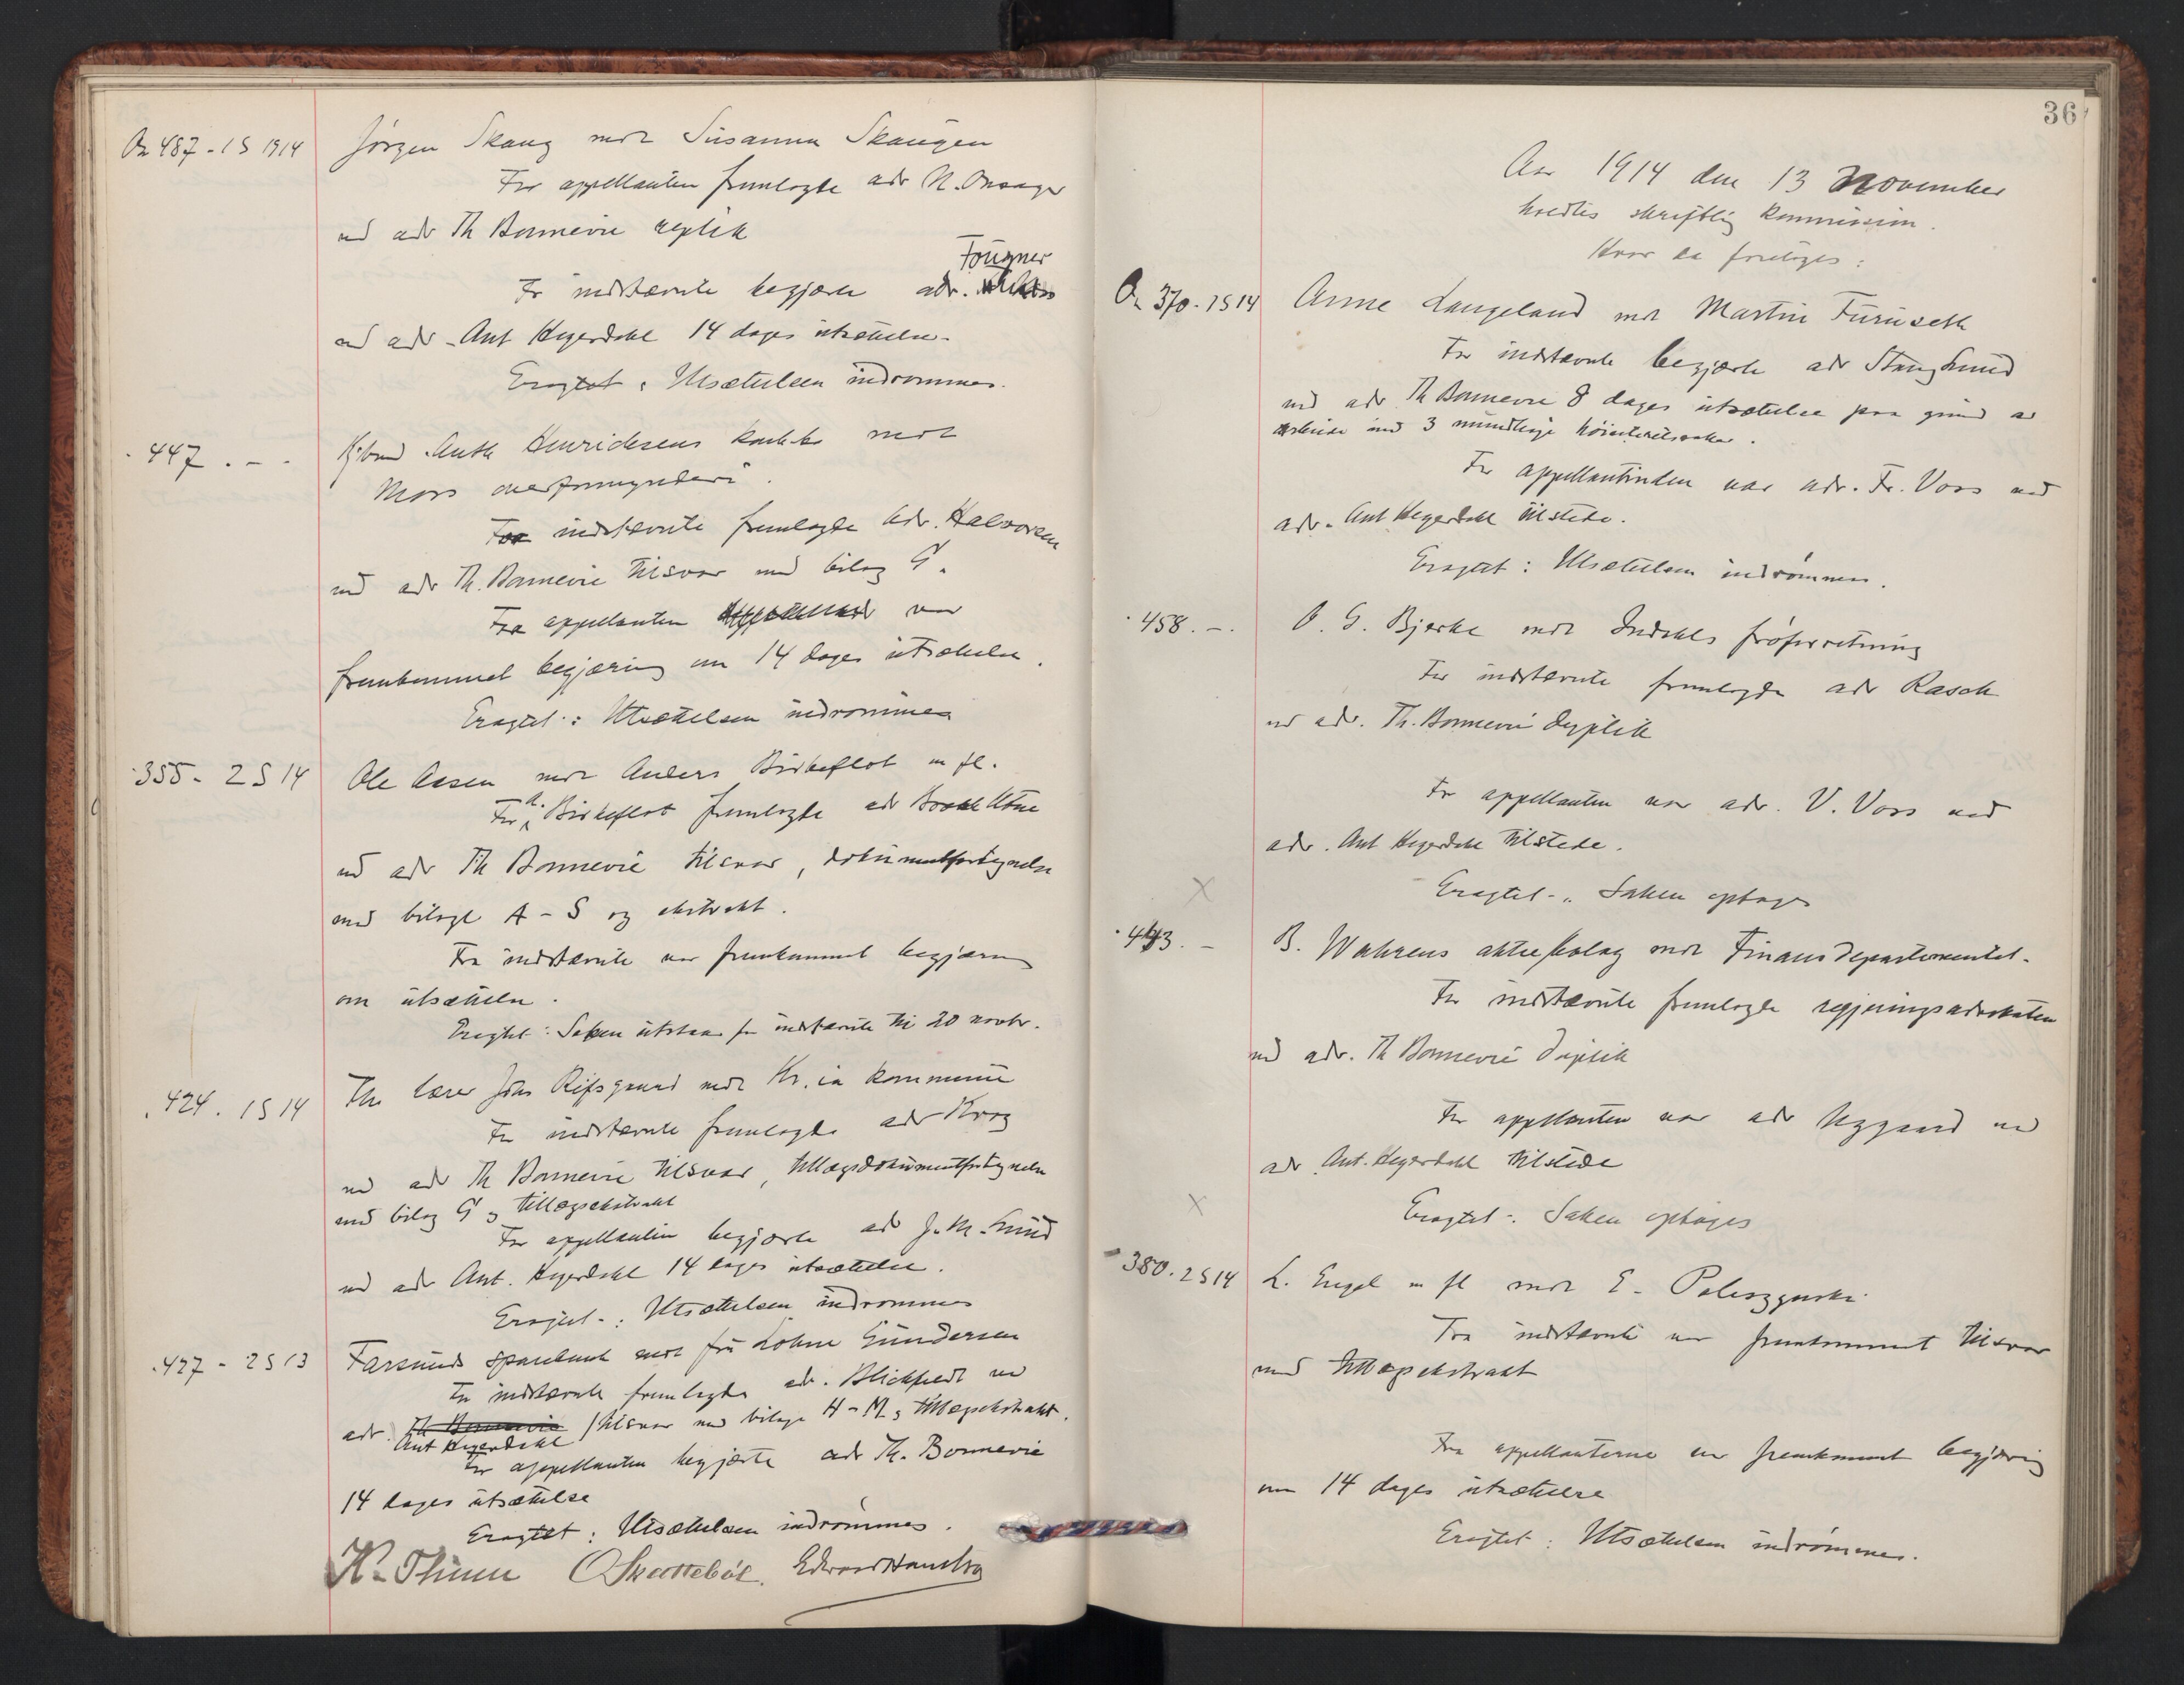 Or 487 - 1 S 1914 Jörgen Skaug mot Susanna Skaugen
For appellanten fremlagde adv N. Onsager
ved adv Th Bonnevie replik
Fougner
For indstævnte begjærte adv.
ved adv. Ant Heyerdahl 14 dages utsættelse.
Eragtet: Utsættelsen indrömmes.
447. - . Anth Henriksens konkbo mot
Moss overformynderi.
For indstævnte fremlagde adv. Halvorsen
ved adv Th. Bonnevie tilsvar med bilag G.
Fra appellanten var
fremkommet begjæring om 14 dages utsættelse.
Eragtet: Utsættelsen indrömmes
355 - 2 S 14 Ole Aasen mot Anders Birkeflot m fl.
For A. Birkeflot fremlagde adv
ved adv Th Bonnevie tilsvar, dokumentfortegnelse
med bilage A - S og ekstrakt.
Fra indstævnte var fremkommet begjæring
om utsættelse.
Eragtet: Saken utstaar for indstævnte til 20 novbr.
424. 1 S 14 Th. lærer Johs Rifsgaard mot Kr.ia kommune
For indstævnte fremlagde adv Krog
ved adv Th Bonnevie tilsvar, tillægsdokumentfortegnelse
med bilag G og tillægsekstrakt
For appellanten begjærte adv J. M. Lund
ved adv Ant. Heyerdahl 14 dages utsættelse.
Eragtet: Utsættelsen indrömmes
427 - 2 S 13 Farsunds sparebank mot fru Lohne Gundersen
For indstævnte fremlagde adv. Blickfeldt ved
adv. Th Bonnevie / tilsvar med bilage H - M og tillægsekstrakt.
Ant Heyerdahl
For appellanten begjærte adv Th. Bonnevie
14 dages utsættelse
Eragtet: Utsættelsen indrömmes.
K. Thinn O Skattebøl. Edvard Hambro
36
Aar 1914 den 13 November
holdtes skriftlig kommission.
Hvor da foretoges:
Or 370. 1 S 14 Anne Langeland mot Martin Furuseth
For indstævnte begjærte adv Stang Lund
ved adv Th Bonnevie 8 dages utsættelse paa grund av
arbeide med 3 mundtlige höiesteretssaker.
For appellantinden var adv. Fr. Voss ved
adv. Ant Heyerdahl tilstede.
Eragtet: Utsættelsen indrömmes.
458. - . O. G. Bjerke mot Indahls fröforretning
For indstævnte fremlagde adv Rasch
ved adv. Th. Bonnevie duplik
For appellanten var adv. V. Voss ved
adv. Ant Heyerdahl tilstede.
Eragtet: Saken optages
X
443. - B. Wahrens aktiebolag mot Finansdepartementet.
For indstævnte fremlagde regjeringsadvokaten
ved adv. Th Bonnevie duplik
For appellanten var adv Nygaard ved
adv Ant. Heyerdahl tilstede
X
Eragtet: Saken optages
380. 2 S 14 L. Engel m fl mot E. Paleszynski
Fra indstævnte var fremkommet tilsvar
med tillægsekstrakt
Fra appellanterne var fremkommet begjæring
om 14 dages utsættelse
Eragtet: Utsættelsen indrömmes.